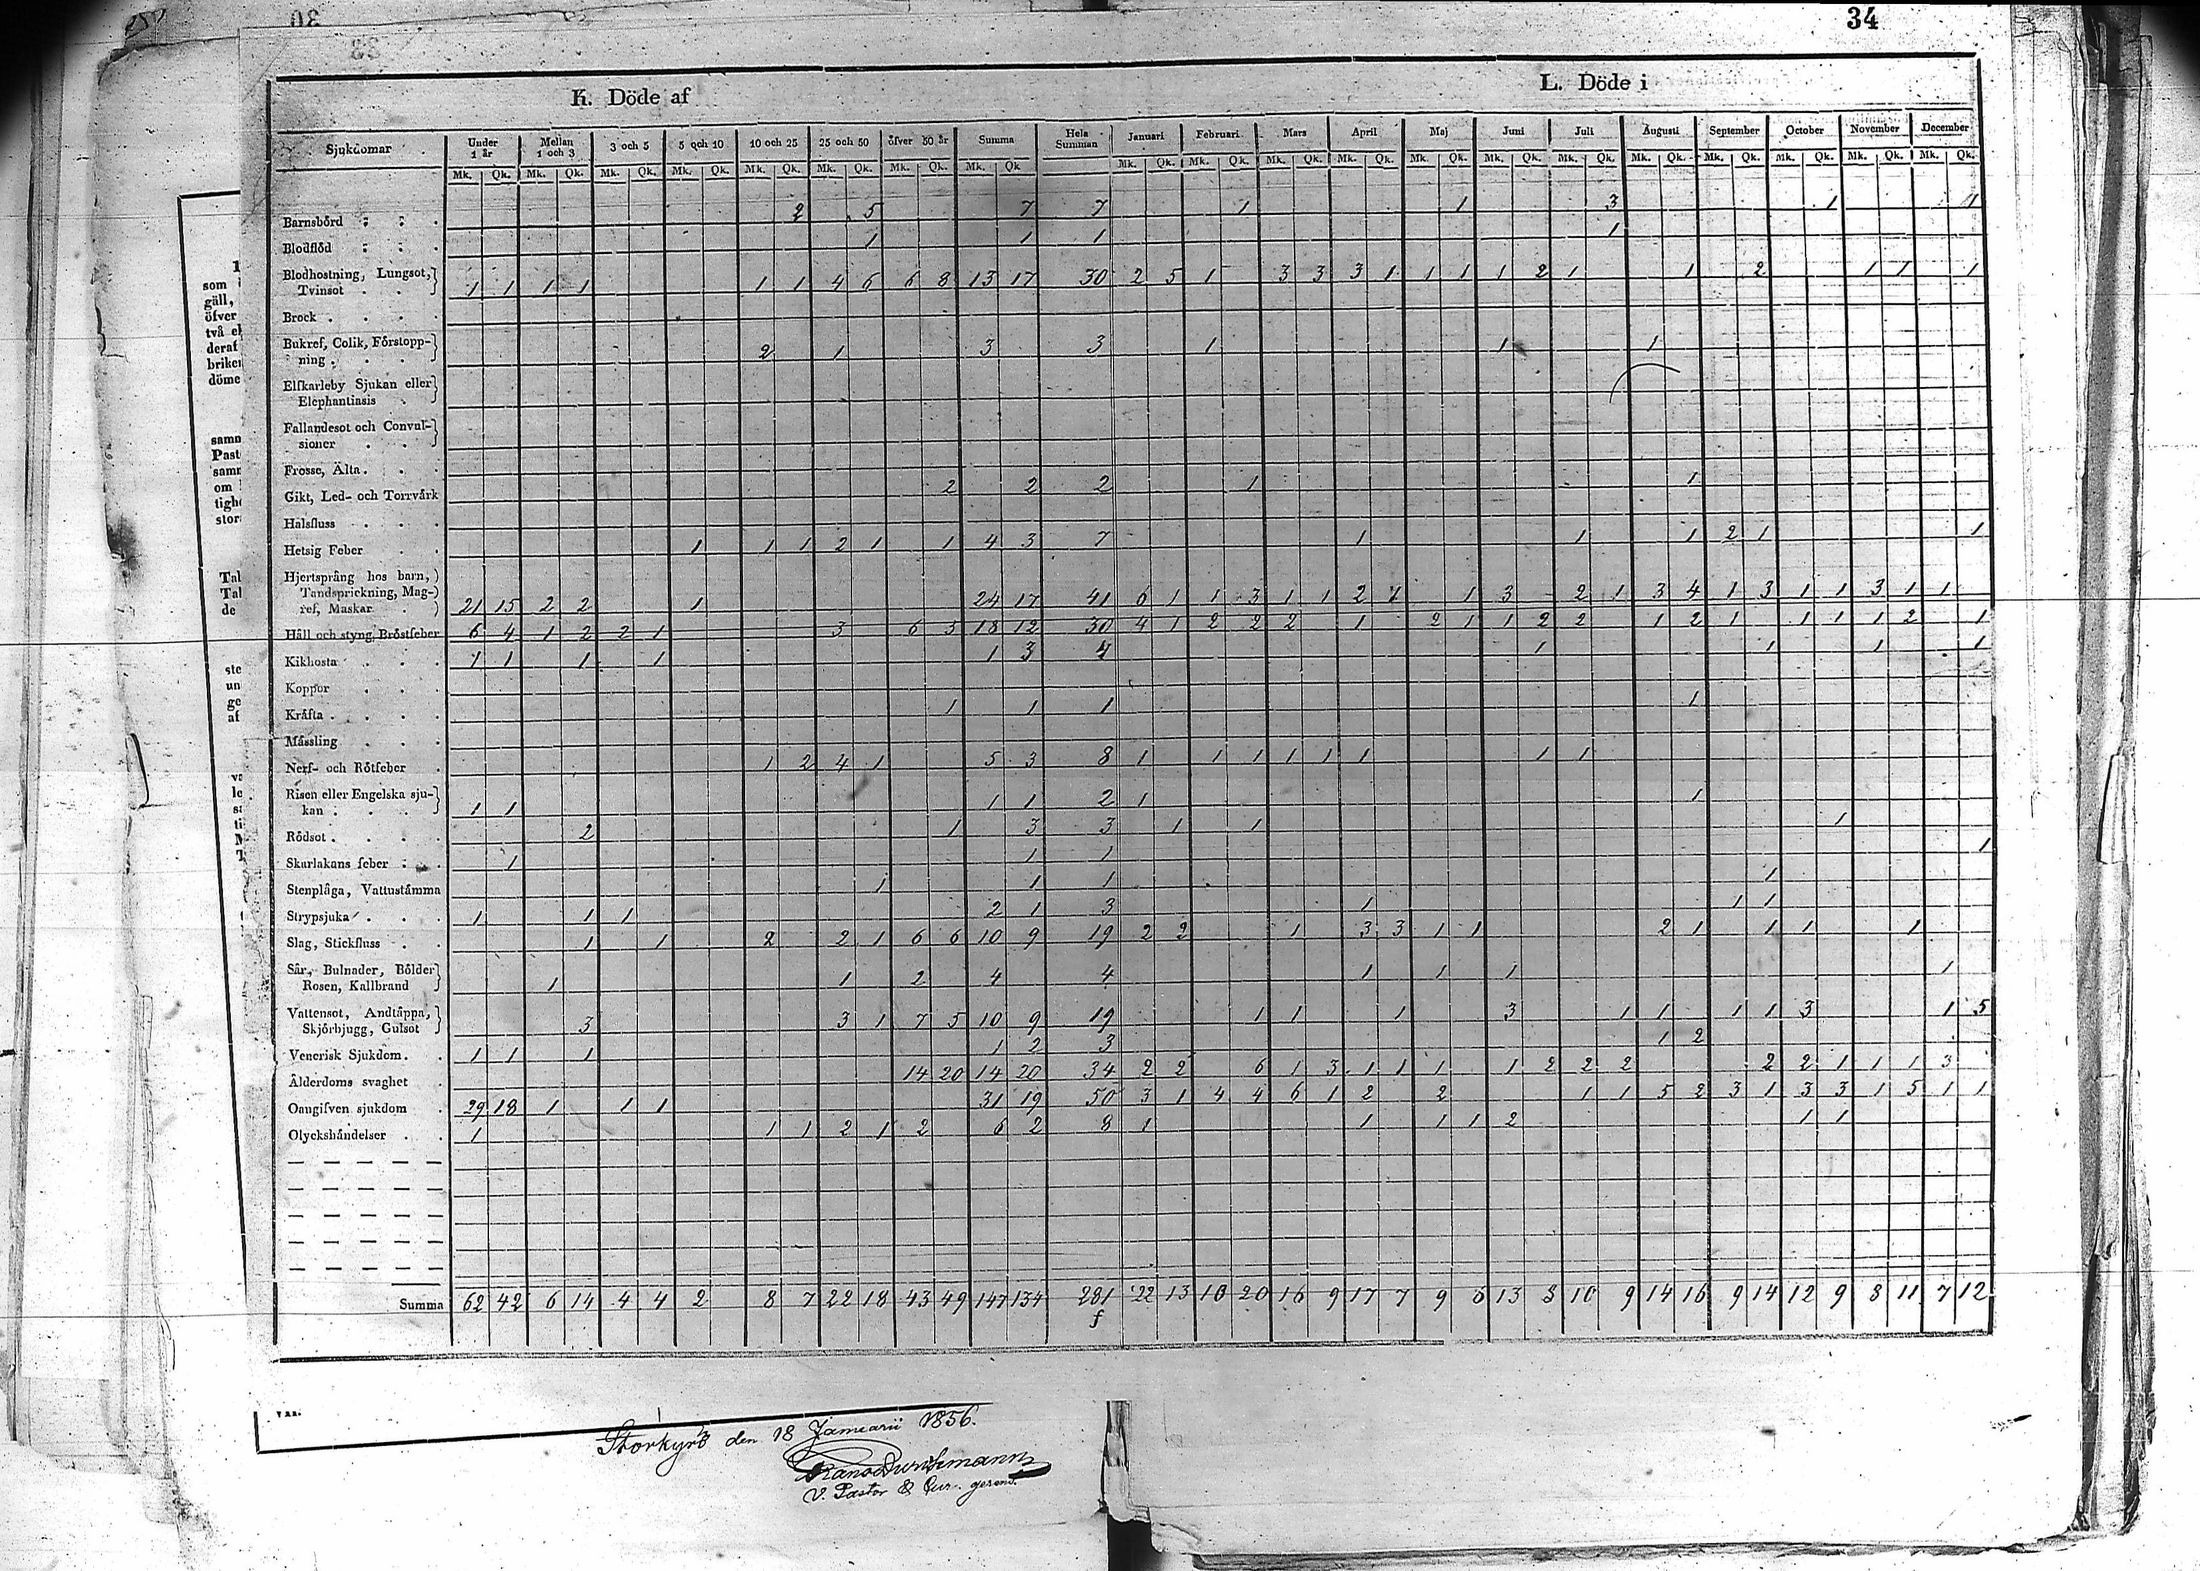 34
K. Döde af L. Döde i
Sjukdomar Under 1 år Mellan 1 och 3 3 och 5 5 och 10 10 och 25 25 och 50 öfver 50 år Summa Hela Summan Januari Februari Mars April Maj Juni Juli Augusti September October November December
Mk. Qk. Mk. Qk. Mk. Qk. Mk. Qk. Mk. Qk. Mk. Qk. Mk. Qk. Mk. Qk Mk. Qk. Mk. Qk. Mk. Qk. Mk. Qk. Mk. Qk. Mk. Qk. Mk. Qk. Mk. Qk. Mk. Qk. Mk. Qk. Mk. Qk. Mk. Qk.
Barnsbörd 2 5 7 7 1 1 3 1 1
Blodflöd 1 1 1 1
Blodhostning, Lungsot,
Tvinsot 1 1 1 1 1 1 4 6 6 8 13 17 30 2 5 1 3 3 3 1 1 1 1 2 1 1 2 1 1 1
Brock
Bukref, Colik, Förstopp-
ning 2 1 3 3 1 1 1
Elfkarleby Sjukan eller
Elephantiasis
Fallandesot och Convul-
sioner
Frosse, Älta
Gikt, Led- och Torrvärk 2 2 2 1 1
Halsfluss
Hetsig Feber 1 1 1 2 1 1 4 3 7 1 1 1 2 1 1
Hjertsprång hos barn,
Tandsprickning, Mag-
ref, Maskar 21 15 2 2 1 24 17 41 6 1 1 3 1 1 2 1 1 3 2 1 3 4 1 3 1 1 3 1 1
Håll och styng, Bröstfeber 6 4 1 2 2 1 3 6 5 18 12 30 4 1 2 2 2 1 2 1 1 2 2 1 2 1 1 1 1 2 1
Kikhosta 1 1 1 1 1 3 4 1 1 1 1
Koppor
Kräfta 1 1 1 1
Mässling
Nerf- och Rötfeber 1 2 4 1 5 3 8 1 1 1 1 1 1 1 1
Risen eller Engelska sju-
kan 1 1 1 1 2 1 1
Rödsot 2 1 3 3 1 1 1
Skarlakans feber 1 1 1 1
Stenplåga, Vattustämma 1 1 1 1
Strypsjuka 1 1 1 2 1 3 1 1 1
Slag, Stickfluss 1 1 2 2 1 6 6 10 9 19 2 2 1 3 3 1 1 2 1 1 1 1
Sår, Bulnader, Bölder
Rosen, Kallbrand 1 1 2 4 4 1 1 1 1
Vattensot, Andtäppa,
Skjörbjugg, Gulsot 3 3 1 7 5 10 9 19 1 1 1 3 1 1 1 1 3 1 5
Venerisk Sjukdom 1 1 1 1 2 3 1 2
Ålderdoms svaghet 14 20 14 20 34 2 2 6 1 3 1 1 1 1 2 2 2 2 2 1 1 1 3
Oangifven sjukdom 29 18 1 1 1 31 19 50 3 1 4 4 6 1 2 2 1 1 5 2 3 1 3 3 1 5 1 1
Olyckshändelser 1 1 1 2 1 2 6 2 8 1 1 1 1 2 1 1
Summa 62 42 6 14 4 4 2 8 7 22 18 43 49 147 134 281 22 13 10 20 16 9 17 7 9 6 13 8 10 9 14 16 9 14 12 9 8 11 7 12
Storkyrö den 18 Januarii 1856.
V. Pastor & Cur. gerens.